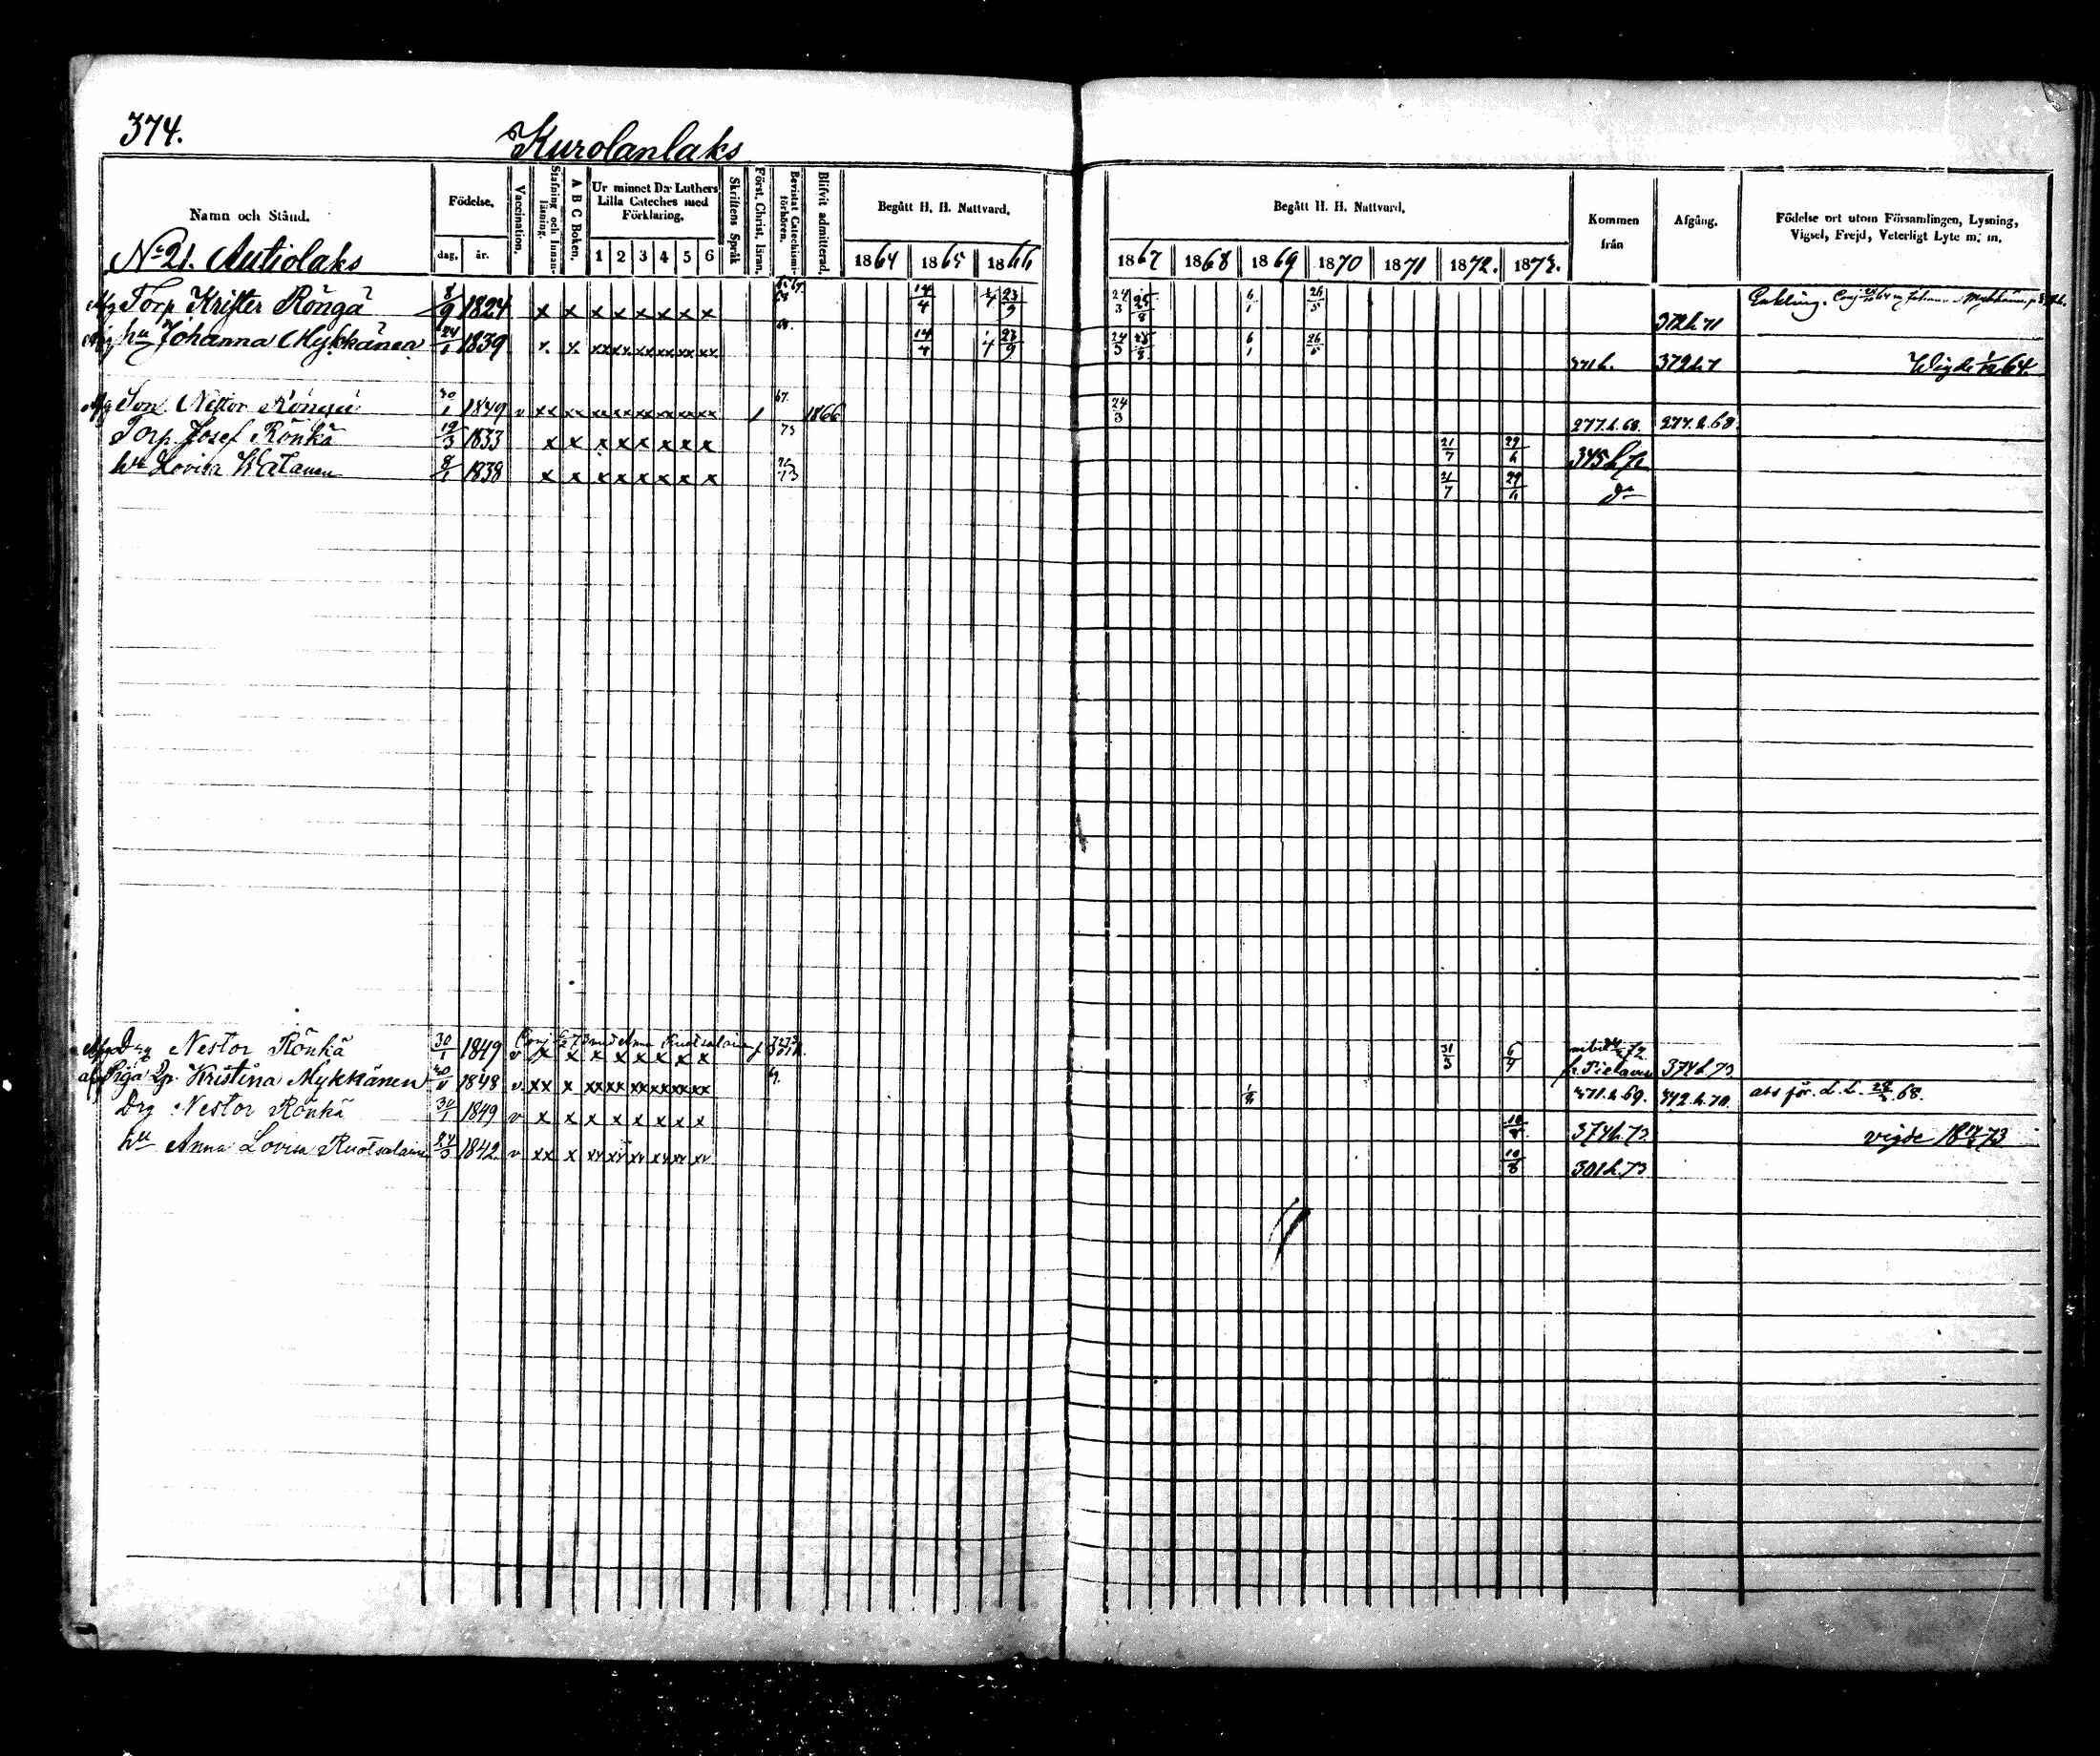 374.
Kurolanlaks
Namn och Stånd.
Födelse.
dag.
år.
Vaccination.
Stafning och Innanläsning.
A B C Boken.
Ur minnet D:r Luthers Lilla Cateches med Förklaring.
1 2 3 4 5 6
Skriftens Språk
Först. Christ. läran.
Bevistat Catechismiförhören.
Blifvit admitterad.
Begått H. H. Nattvard.
1864 1865 1866
Begått H. H. Nattvard.
1867 1868 1869 1870 1871 1872. 1873.
Kommen från
Afgång.
Födelse ort utom Församlingen, Lysning, Vigsel, Frejd, Veterligt Lyte m. m.
No 21. Autiolaks
Torp Krister Röngä 8/9 1824 x x x x x x x x 14/4 23/9 24/3 25/8 6/1 26/5 372h.71 Enkling.
hu Johanna Mykkänen 24/1 1839 x. x. xx xx xx xx xx xx 68. 14/4 1/4 23/9 24/3 25/8 6/1 26/5 371h. 372h.7 Wigde 64.
Son Nestor Rönkä 30/1 1849 v xx xx xx xx xx xx xx xx 1 67. 1866 24/3 277.h.68. 277.h.68.
Torp. Josef Rönkä 19/3 1833 x x x x x x x x 73 21/7 29/6 345h.72
hu Lovisa Watanen 8/1 1838 x x x x x x x x 72/73 21/7 29/6 do
Conj. 73 med Anna Ruotsalainen p. 301h.
Drg Nestor Rönkä 30/1 1849 v x x x x x x x x 31/3 6/4 fr. Pielavesi 374h.73
Piga Kristina Mykkänen 1848 v. xx x xx xx xx xx xx xx 69. 371.h.69. 372.h.70. abs för. L. L. .68.
Drg Nestor Rönkä 30/1 1849 v x x x x x x x x 10/8 374h.73 vigde 18 73
hu Anna Lovisa Ruotsalainen 24/3 1842 v xx x xx xx xx xx xx xx 10/8 301h.73